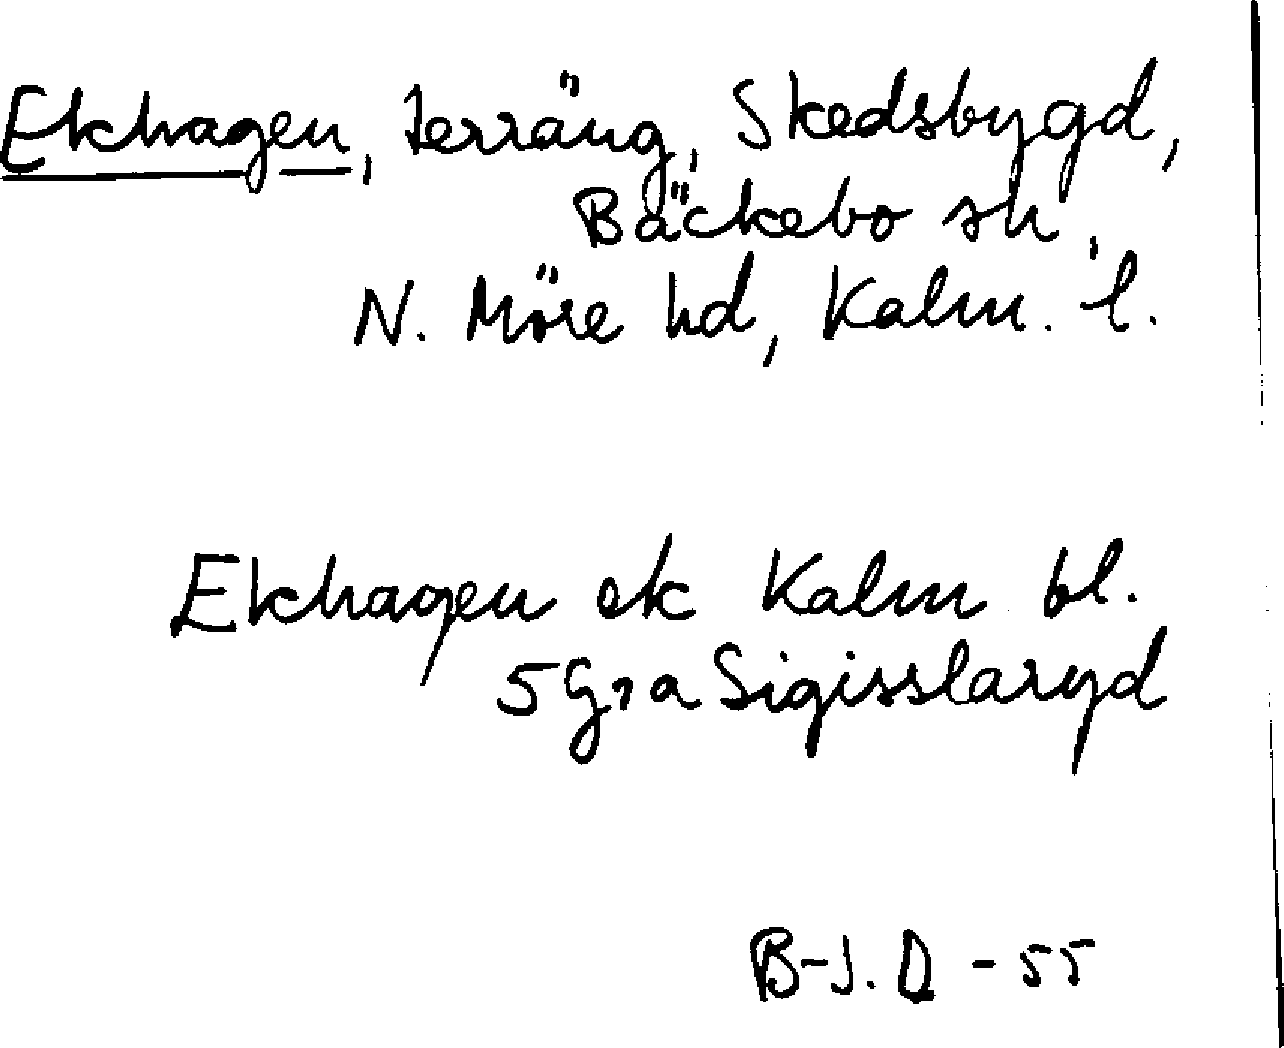 Ekhagen, terräng, Skedsbygd,
Bäckebo sn,
N. Möre hd, Kalm. l.
Ekhagen ek Kalm bl.
5 G, a Sigisslaryd
B-J. D -55